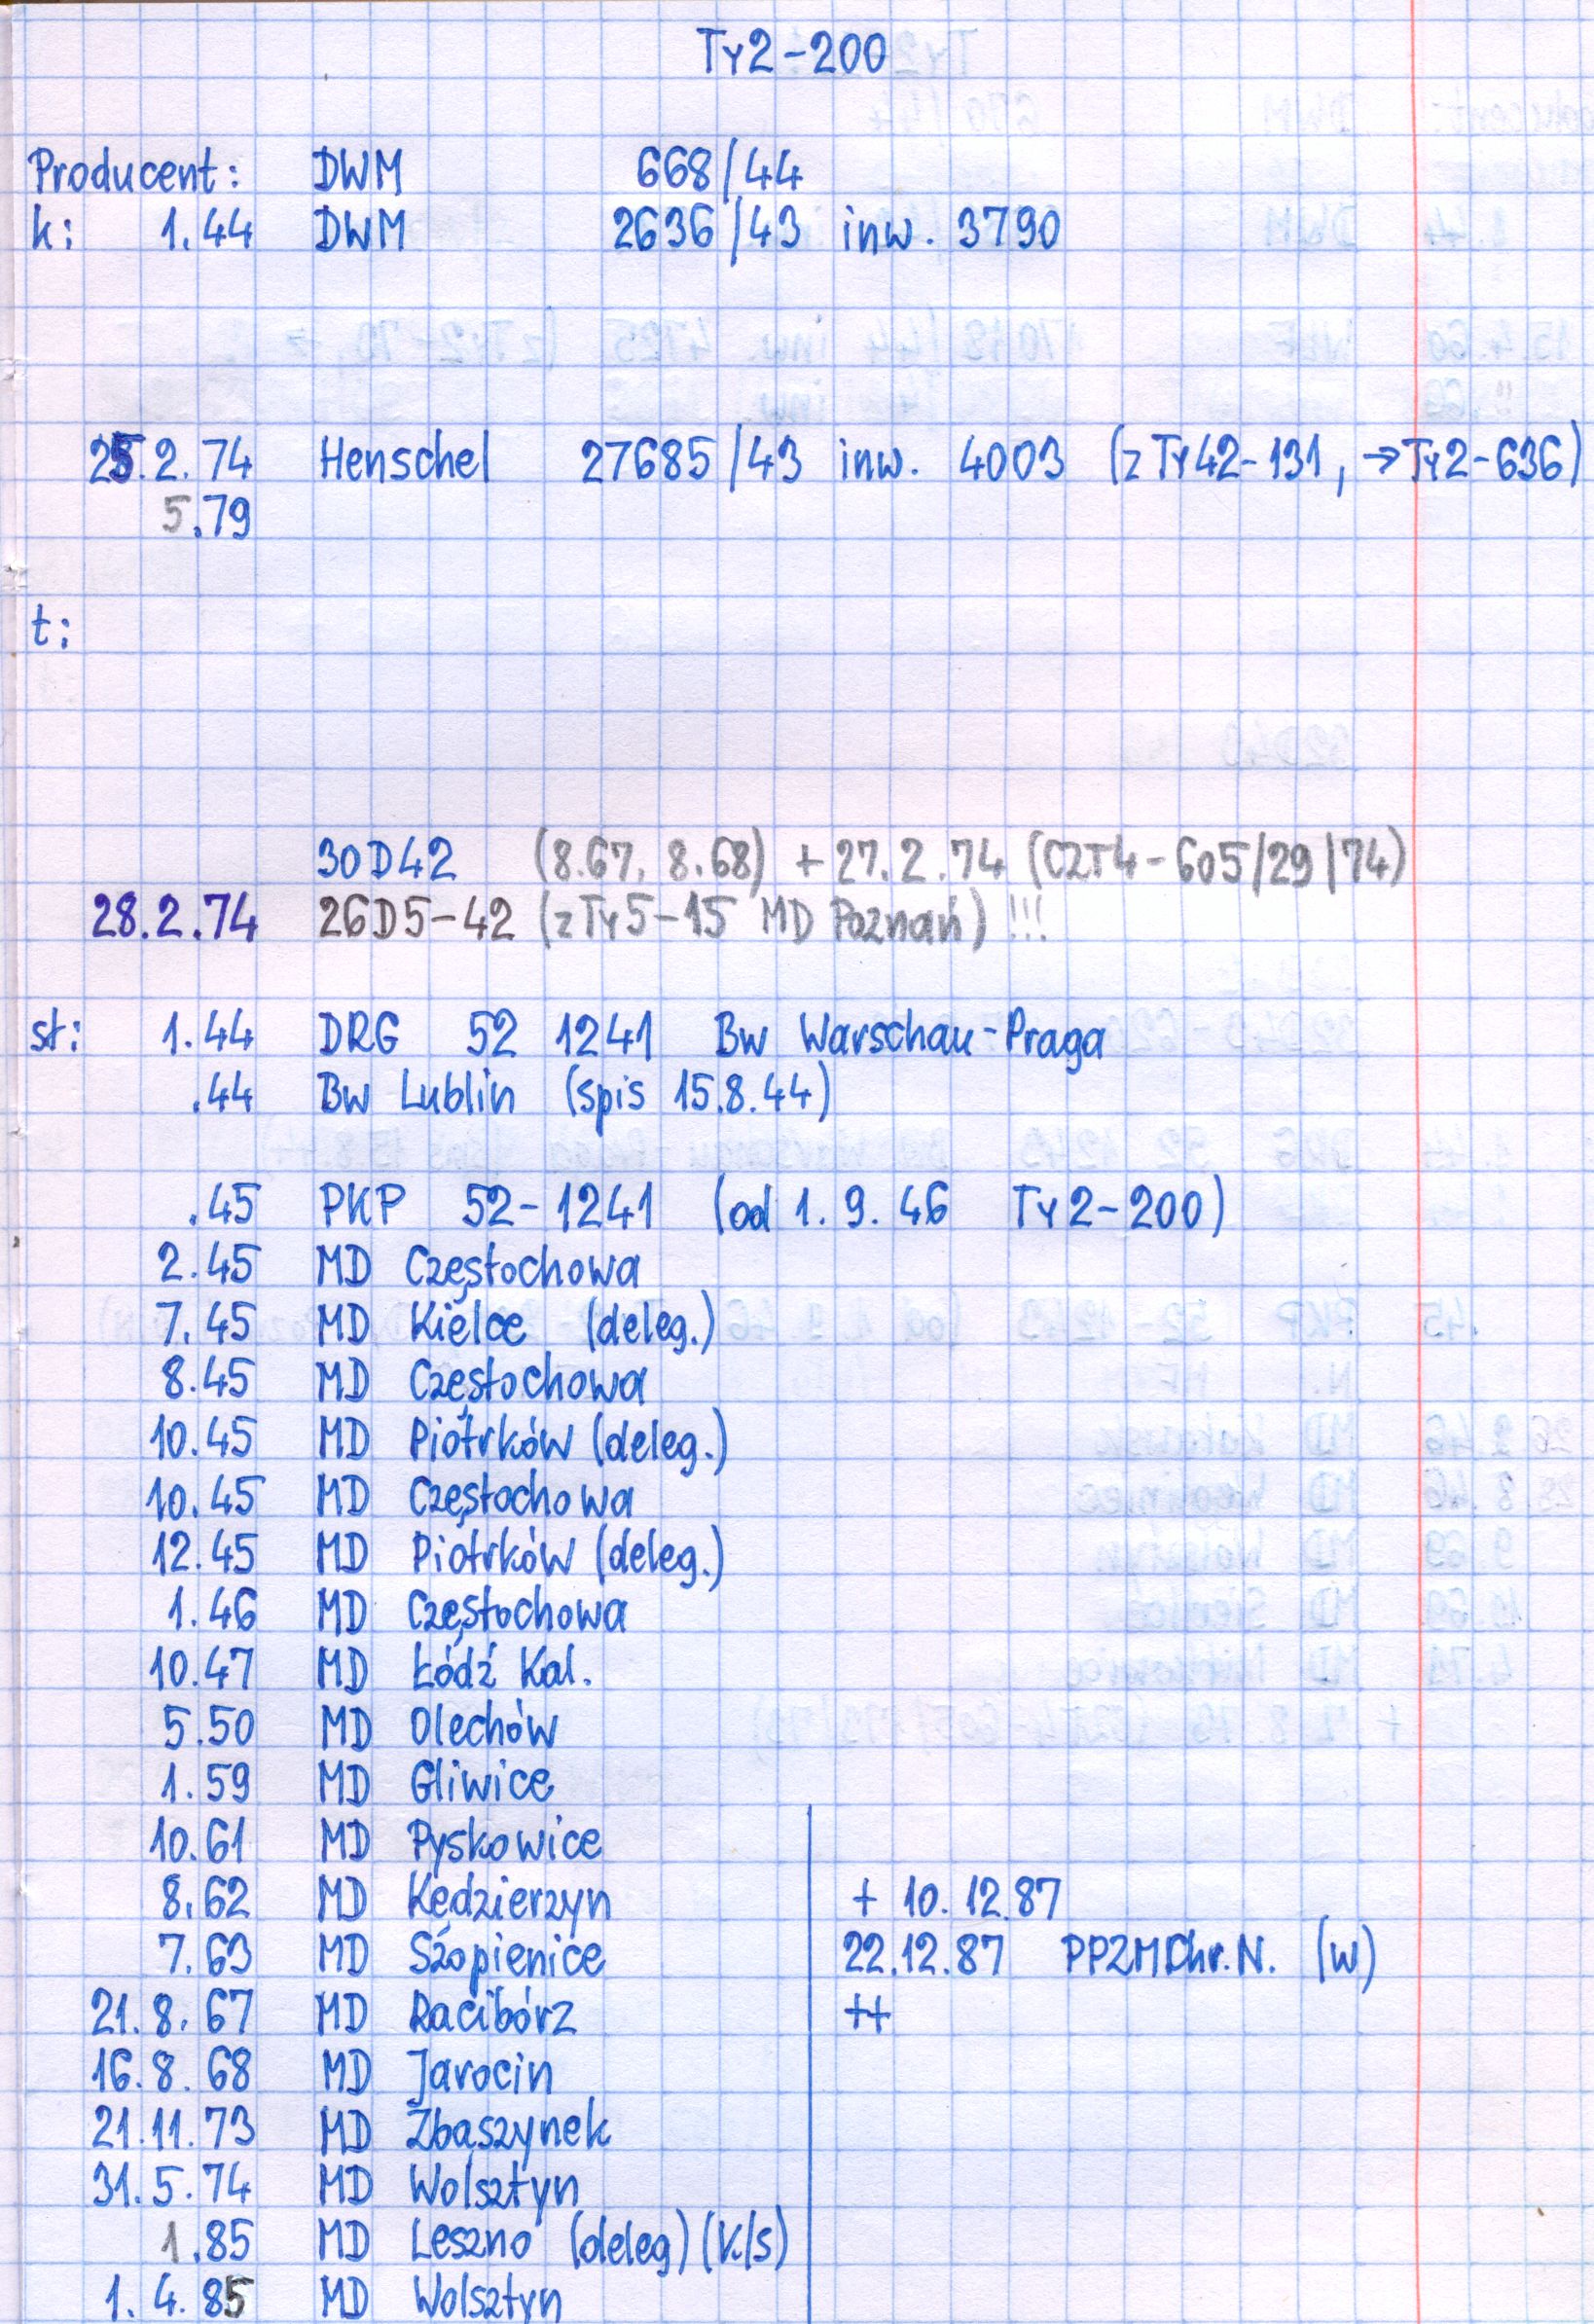 Ty2-200
Producent: DWM 668/44
k: 1.44 DWM 2636/43 inw. 3790
25.2.74 Henschel 27685/43 inw. 4003 (z Ty42-131, →Ty2-636)
5.79
t:
30D42 (8.67, 8.68) + 27.2.74 (CZT4-605/29/74)
28.2.74 26D5-42 (z Ty5-15 MD Poznań) !!!
st: 1.44 DRG 52 1241 Bw Warschau-Praga
.44 Bw Lublin (spis 15.8.44)
.45 PKP 52-1241 (od 1.9.46 Ty2-200)
2.45 MD Częstochowa
7.45 MD Kielce (deleg.)
8.45 MD Częstochowa
10.45 MD Piotrków (deleg.)
10.45 MD Częstochowa
12.45 MD Piotrków (deleg.)
1.46 MD Częstochowa
10.47 MD Łódź Kal.
5.50 MD Olechów
1.59 MD Gliwice
10.61 MD Pyskowice
8.62 MD Kędzierzyn
7.63 MD Szopienice
21.8.67 MD Racibórz
16.8.68 MD Jarocin
21.11.73 MD Zbąszynek
31.5.74 MD Wolsztyn
1.85 MD Leszno (deleg) (k/s)
1.4.85 MD Wolsztyn
+ 10.12.87
22.12.87 PPZMChr.N. (W)
++